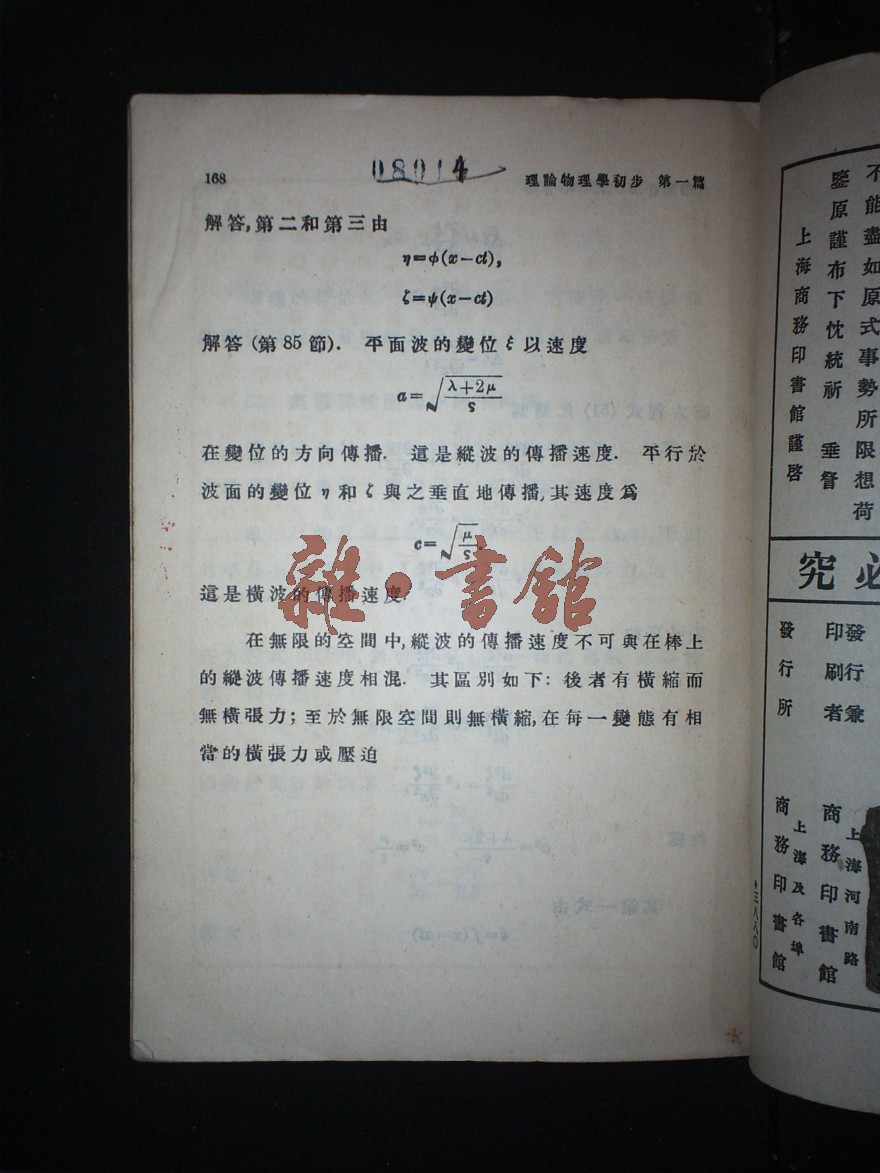 168
08014
理論物理學初步 第一篇
解答,第二和第三由
η=ϕ(x−ct),
ζ=ψ(x−ct)
解答 (第 85 節). 平面波的變位 ξ 以速度
a=√(λ+2μ/s)
在變位的方向傳播. 這是縱波的傳播速度. 平行於
波面的變位 η 和 ζ 與之垂直地傳播,其速度爲
c=√(μ/s).
這是橫波的傳播速度.
在無限的空間中,縱波的傳播速度不可與在棒上
的縱波傳播速度相混. 其區別如下: 後者有橫縮而
無橫張力; 至於無限空間則無橫縮,在每一變態有相
當的橫張力或壓迫
雜·書館
不能盡如原式事勢所限想荷
鑒原謹布下忱統祈 垂詧
上海商務印書館謹啓
必究
發行兼
印刷者
發行所
上海河南路
商務印書館
上海及各埠
商務印書館